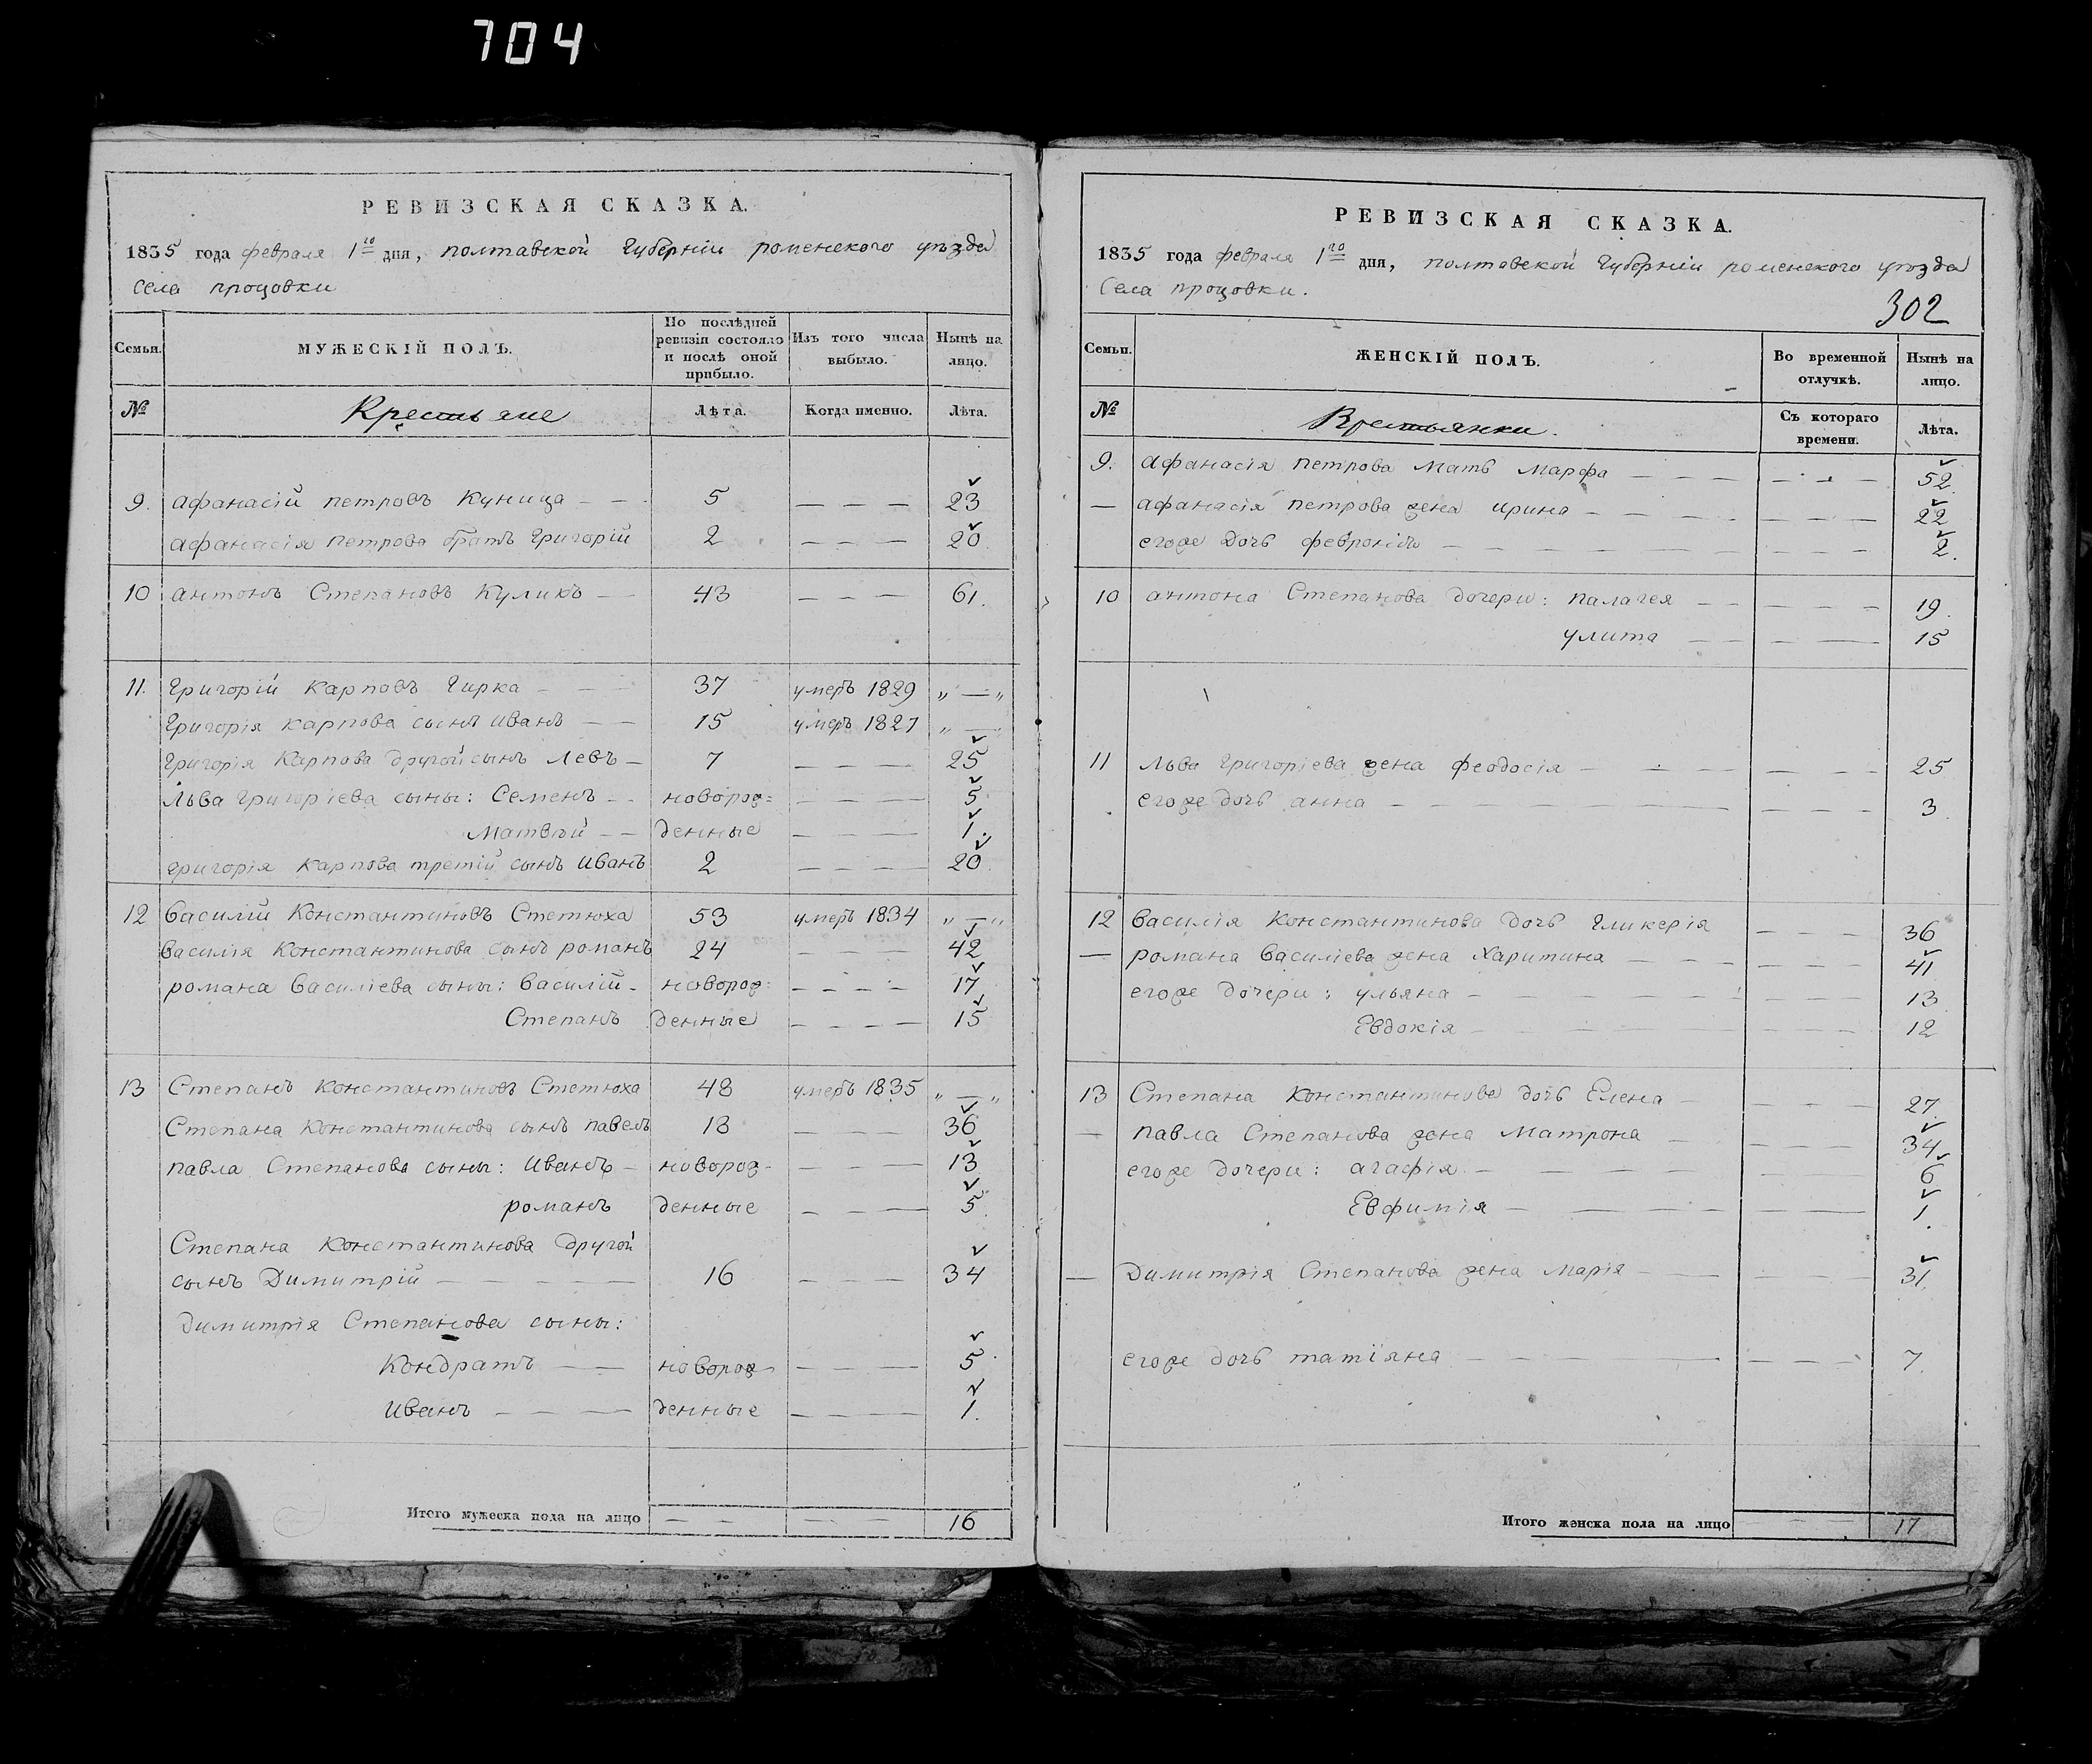 704
РЕВИЗСКАЯ СКАЗКА.
1835 года февраля 1го дня, полтавской Губерніи роменского уѣзда
Села процовки
Семьи.
МУЖЕСКІЙ ПОЛЪ.
По послѣдней ревизіи состояло и послѣ оной прибыло.
Изъ того числа выбыло.
Нынѣ на лицо.
№ Крестьяне Лѣта. Когда именно. Лѣта.
9. афанасій петровъ Куница — — 5 — — — 23
афанасія петрова братъ Григорій 2 — — — 20
10 антонъ Степановъ Куликъ — 43 — — — 61.
11. Григорій Карповъ Гирка — — 37 умеръ 1829 „ — „
Григорія Карпова сынъ иванъ — — 15 умеръ 1827 „ — „
Григорія Карпова другой сынъ Левъ — 7 — — — 25
Льва Григоріева сыны: Семенъ — новорож= — — — 5
Матвѣй — — денные — — — 1.
григорія Карпова третій сынъ иванъ 2 — — — 20
12 Василій Константиновъ Стетюха 53 умеръ 1834 „ — „
василія Константинова сынъ романъ 24 — — — 42
романа Василіева сыны: Василій — новорож= — — — 17
Степанъ денные — — — 15
13 Степанъ Константиновъ Стетюха 48 умеръ 1835 „ — „
Степана Константинова сынъ павелъ 18 — — — 36
павла Степанова сыны: иванъ — новорож- — — — 13
романъ денные — — — 5.
Степана Константинова другой
сынъ Димитрій — — — — 16 — — — 34
Димитрія Степанова сыны:
Кондратъ — — новорож- — — — 5
иванъ — — — денные — — — 1.
Итого мужеска пола на лицо — — — — 16
РЕВИЗСКАЯ СКАЗКА.
1835 года февраля 1го дня, полтавской Губерніи роменского уѣзда
Села процовки.
302
Семьи.
ЖЕНСКІЙ ПОЛЪ.
Во временной отлучкѣ.
Нынѣ на лицо.
№ Крестьянки. Съ котораго времени. Лѣта.
9. афанасія петрова мать марфа — — — — — — 52.
— афанасія петрова жена ирина — — — — — — — 22
егоже дочь февронія — — — — — — — — 2.
10 антона Степанова дочери: палагея — — — — — 19.
улита — — — — 15
11 Льва Григоріева жена феодосія — — — — — — 25
егоже дочь анна — — — — — — — 3
12 василія Константинова дочь гликерія — — — 36
— романа Василіева жена Харитина — — — — — — 41
егоже дочери: ульяна — — — — — — — 13
Евдокія — — — — — — 12
13 Степана Константинова дочь Елена — — — — 27.
— павла Степанова жена матрона — — — — 34
егоже дочери: агафія — — — — — — 6
Евфимія — — — — — — 1.
— Димитрія Степанова жена марія — — — — — 31.
егоже дочь татіяна — — — — — — — 7.
Итого женска пола на лицо — — 17